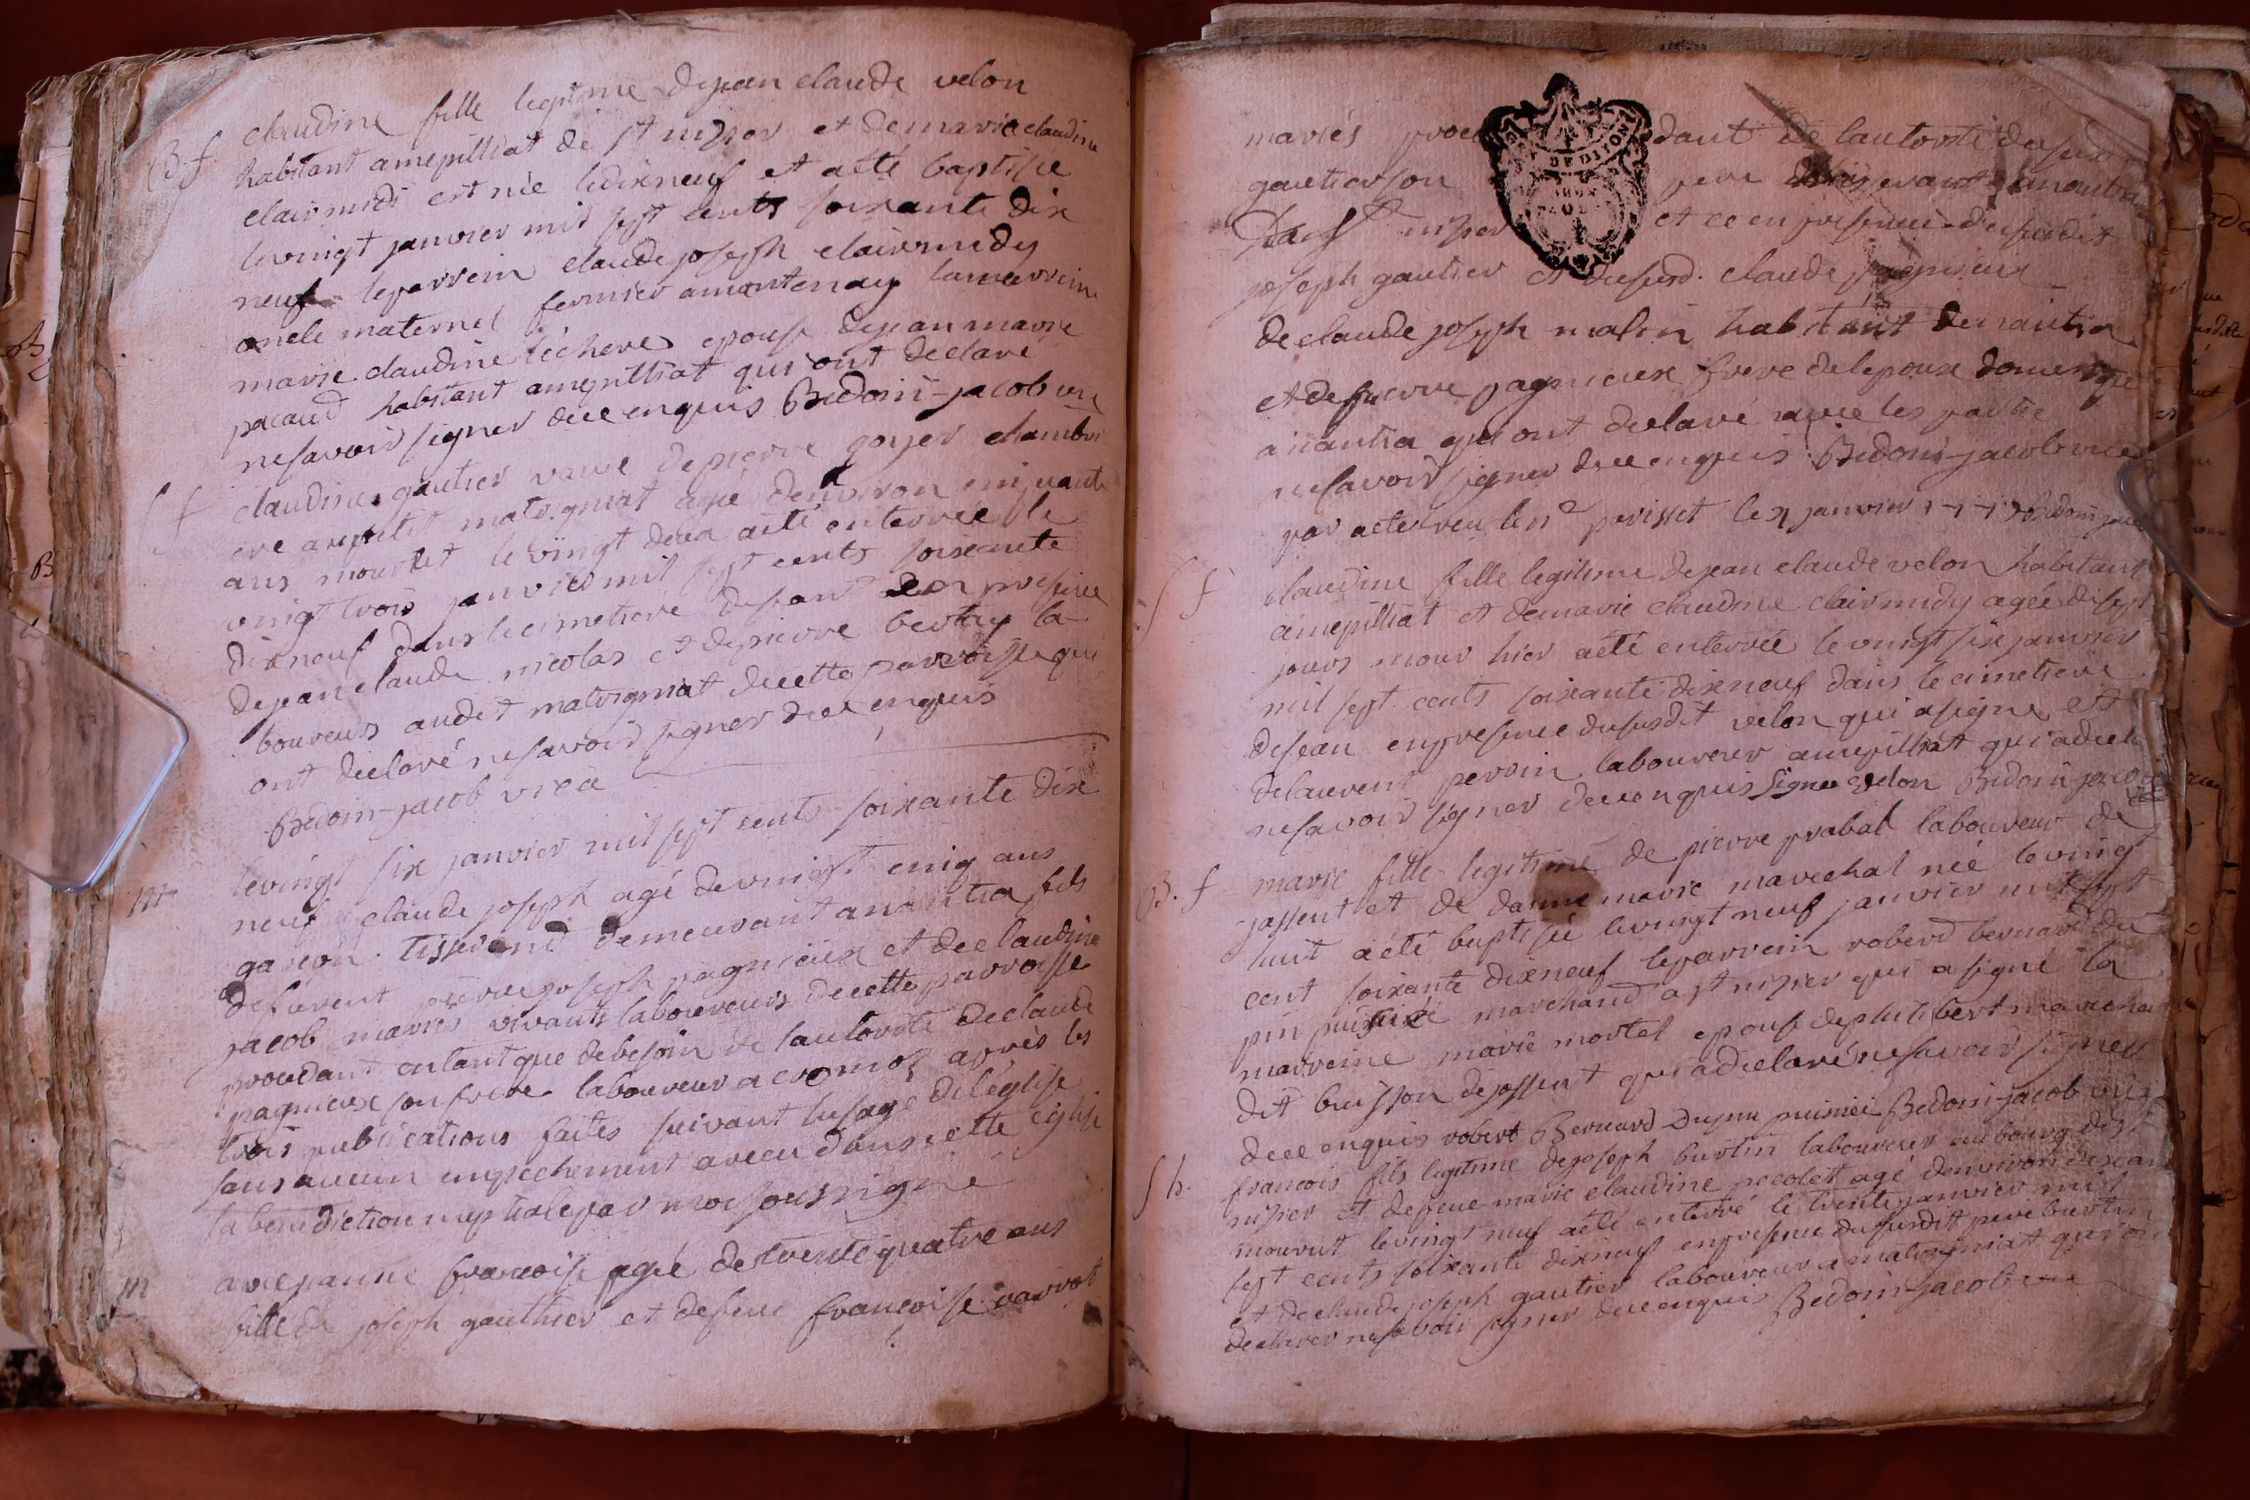 B. f.
claudine fille legitime de jean claude velon
habitant a mepilliat de st nizier et de marie claudine
clairmidi est née le dixneuf et a eté baptisée
le vingt janvier mil sept cents soixante dix
neuf le parrein claude joseph clairmidy
oncle maternel fermier a montenay la marreine
marie claudine echere epouse de jean marie
pacaud habitant a mepilliat qui ont declaré
ne savoir signer de ce enquis Bedoin-jacob
f
claudine gautier vauve de pierre goyer chambri
ere a petit matrigniat agé denviron cinquante
ans mourut le vingt deux a eté enterrée le
vingt trois janvier mil sept cents soixante
dixneuf dans le cimetiere en presence
de jean claude nicolas et de pierre bertay la
boureurs audit matrigniat de cette parroisse qui
ont declaré ne savoir signer de ce enquis
Bedoin-jacob vice
m
le vingt six janvier mil sept cents soixante dix
neuf claude joseph agé de vingt cinq ans
garçon tisserand demeurant a nantia fils
pierre joseph pagnieux et de claudine
jacob mariés vivants laboureurs de cette parroisse
procedant en tant que de besoin de l'autorité de claude
pagnieux son frere laboureur a cromoz après les
trois publications faites suivant lusage de l'eglise
sans aucun empechement a recu dans cette eglise
la benediction nuptiale par moi soussigné
m
avec jeanne françoise agé de trente quatre ans
fille de joseph gauthier et de feue françoise
mariés dant de lautorité du susd
gautier son pere
nizier et ce en presence du susdit
joseph gautier et du susd. claude pagnieux
de claude joseph malin habitant de nantia
et de pierre pagnieux frere de lepoux domestique
a nantia qui ont declaré avec les partie
ne savoir signer de ce enquis Bedoin-jacob vice
par acte reçu le n.e perisset le janvier
f
claudine fille legitime de jean claude velon habitant
a mepilliat et de marie claudine clairmidy agée de sept
jours mour hier a eté enterrée le vingt six janvier
mil sept cents soixante dixneuf dans le cimetiere
en presence du susdit velon qui a signé et
de laurent perrin laboureur a mepilliat qui a declaré
ne savoir signer de ce enquis Signé velon Bedoin jacob
B. f
marie fille legitime de pierre prabat laboureur de
jassent et de marie marechal née le vingt
huit a eté baptisé le vingt neuf janvier mil sept
cent soixante dixneuf le parrein roberd bernard du
pin marchand a st nizier qui a signé la
marreine marie mortel epouse de philibert marechal
dit buisson de jossent qui a declaré ne savoir signer
de ce enquis robert Bernard Dupin Bedoin-jacob
S h.
francois fils legitime de joseph burtin laboureur au bourg de st
nizier et de feue marie claudine pecolet agé denviron
mourut le vingt neuf a eté enterré le trente janvier mil
sept cents soixante dixneuf en presence du susdit pere burtin
et de claude joseph gautier laboureur a matrigniat qui ont
declarer ne savoir signer de ce enquis Bedoin-jacob